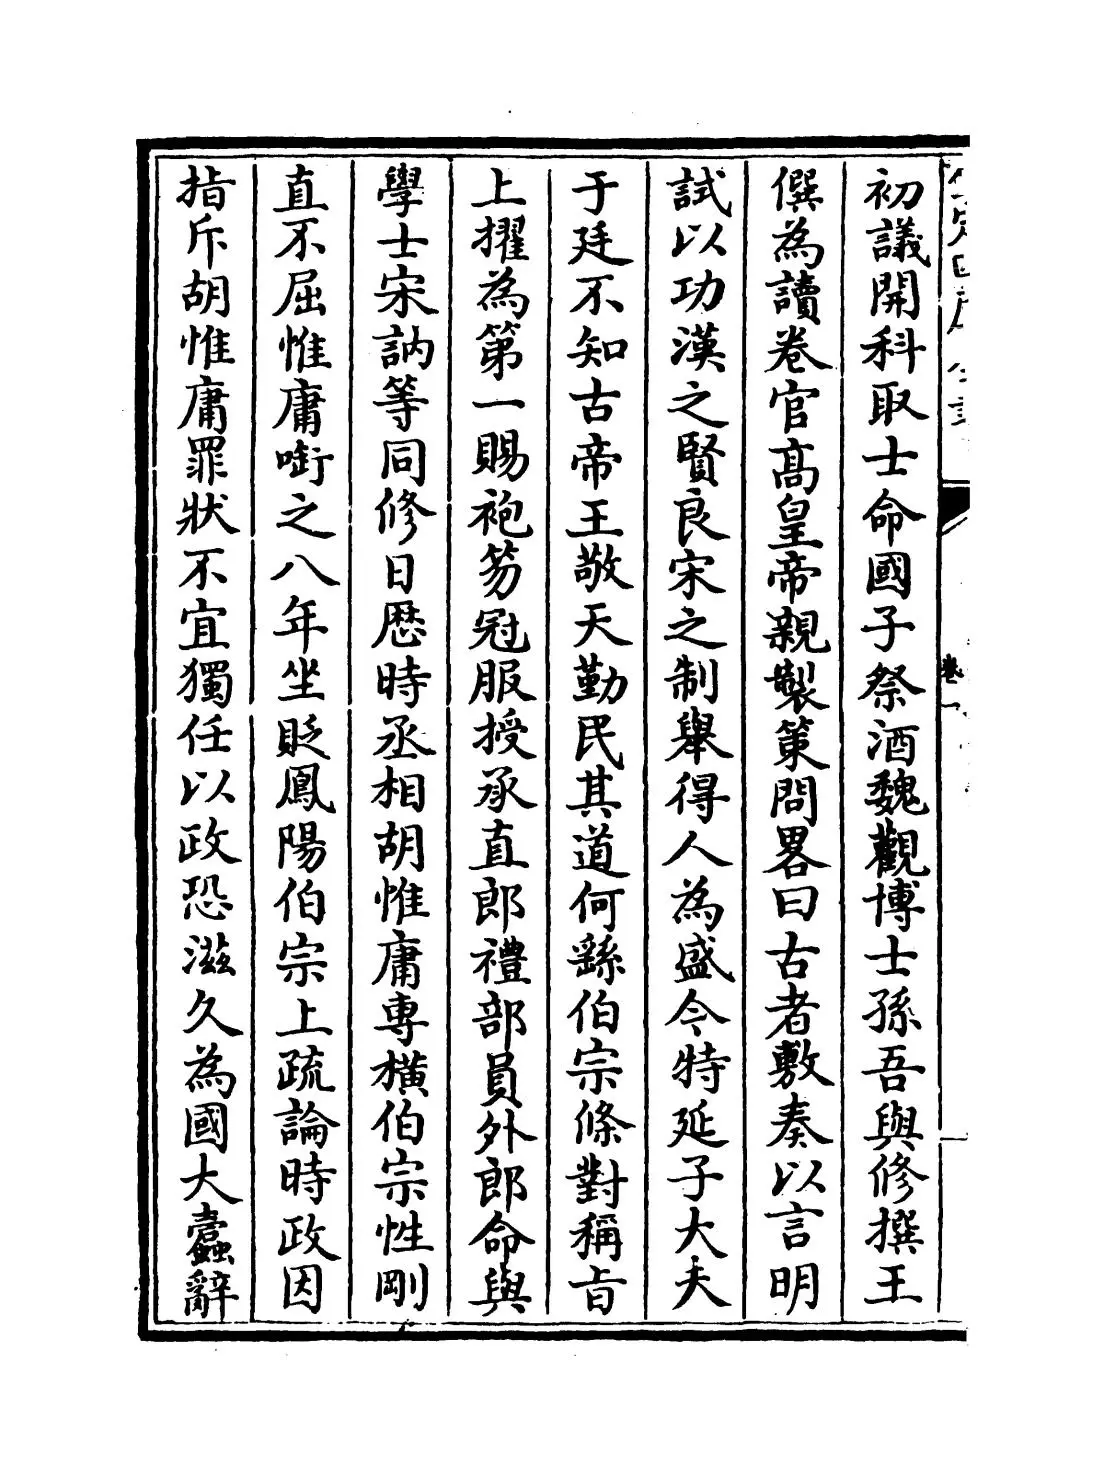 初議開科取士命國子祭酒魏觀博士孫吾與修撰王
僎為讀卷官髙皇帝親製策問畧曰古者敷奏以言明
試以功漢之賢良宋之制舉得人為盛今特延子大夫
于廷不知古帝王敬天勤民其道何繇伯宗條對稱㫖
上擢為第一賜袍笏冠服授承直郎禮部員外郎命與
學士宋訥等同修日厯時丞相胡惟庸專橫伯宗性剛
直不屈惟庸㗸之八年坐貶鳳陽伯宗上疏論時政因
指斥胡惟庸罪狀不宜獨任以政恐滋久為國大蠹辭